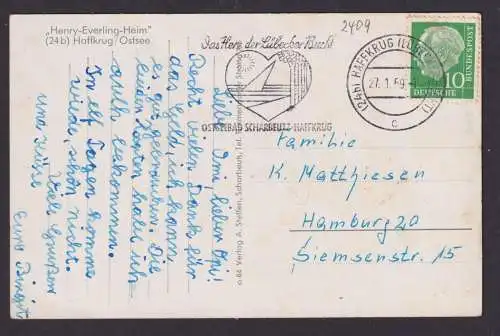 „Henry-Everling-Heim"
(24b) Haffkrug/Ostsee
2409
Das Herz der Lübecker Bucht
OSTSEEBAD SCHARBEUTZ-HAFFKRUG
(24b) HAFFKRUG
27.1.59
c
10
DEUTSCHE
BUNDESPOST
Liebe Omi, lieber Opi!
Recht vielen Dank für
das Geld, ich kann
es gut gebrauchen. Die
beiden Karten habe ich
auch bekommen.
In elf Tagen komme
ich wieder, schön nicht.
Viele Grüsse
und Küsse
Eure Birgit
Verlag A. Steffen, Scharbeutz, Tel.
Familie
K. Matthiesen
Hamburg 20
Siemsenstr. 15